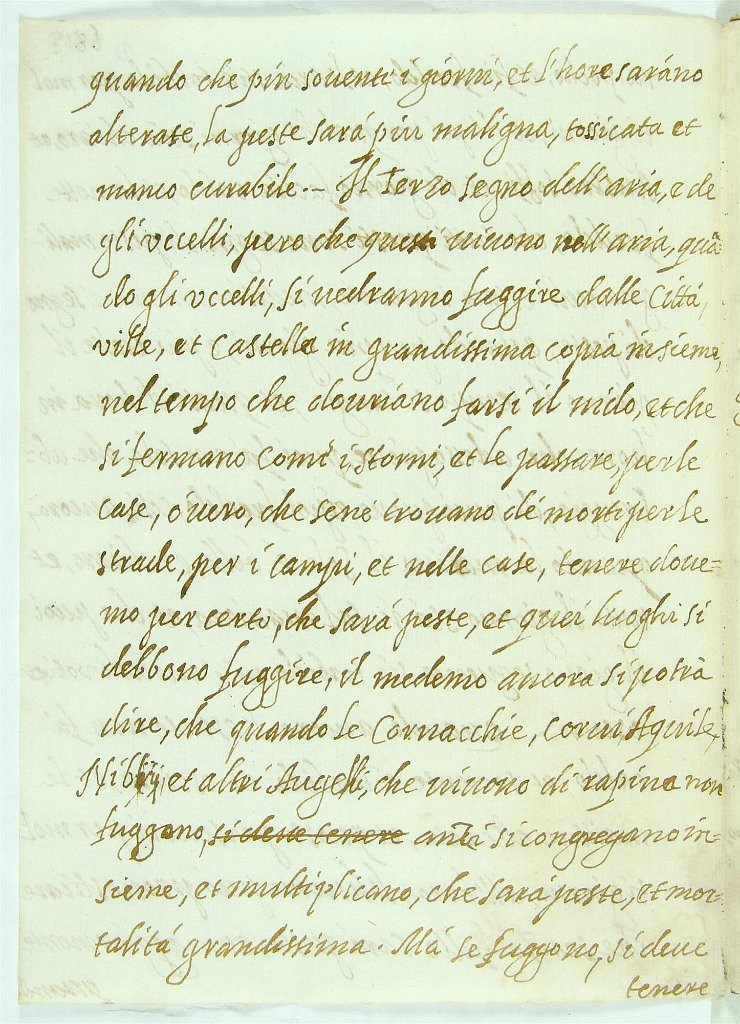 quando che più soventi i giorni, et l'hore saráno
alterate, la peste sará più maligna, tossicata et
manco curabile.– Il Terzo segno dell'aria, e de
gli uccelli, pero che questi uiuono nell'aria, quã
do gli uccelli, si uedranno fuggire dalle Cittá,
ville, et Castella in grandissima copia insieme,
nel tempo che douriano farsi il nido, et che
si fermano come i storni, et le passare, per le
case, ó uero, che se ne trouano dé morti per le
strade, per i campi, et nelle case, tenere doue=
mo per certo, che sará peste, et quei luoghi si
debbono fuggire, il medemo ancora si potrà
dire, che quando le Cornacchie, Corui, Aquile,
Nibij, et altri Augelli, che uiuono di rapina non
fuggono, si deue tenere anzi si congregano in=
sieme, et multiplicano, che sará peste, et mor=
talitá grandissima. Má se fuggono, si deue
tenere